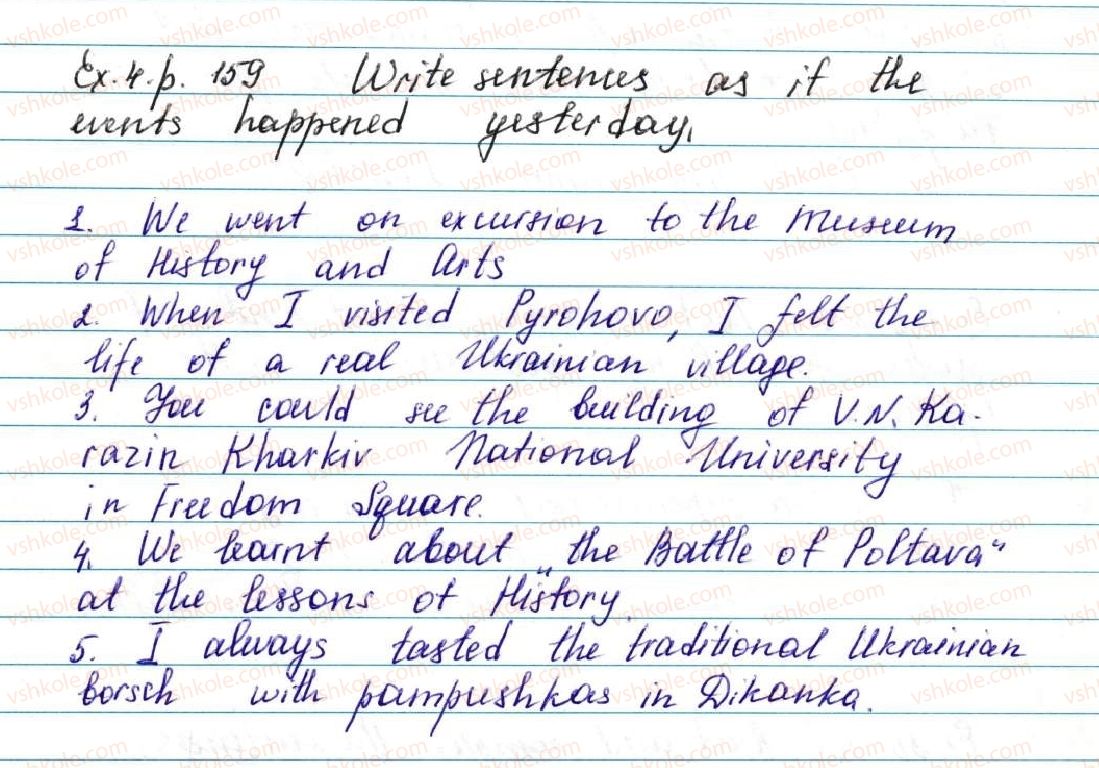 Ex. 4. p. 159 Write sentences as if the
events happened yesterday.
1. We went on excursion to the Museum
of History and Arts
2. When I visited Pyrohovo, I felt the
life of a real Ukrainian village.
3. You could see the building of V.N. Ka-
razin Kharkiv National University
in Freedom Square.
4. We learnt about „the Battle of Poltava"
at the lessons of History.
5. I always tasted the traditional Ukrainian
borsch with pampushkas in Dikanka.